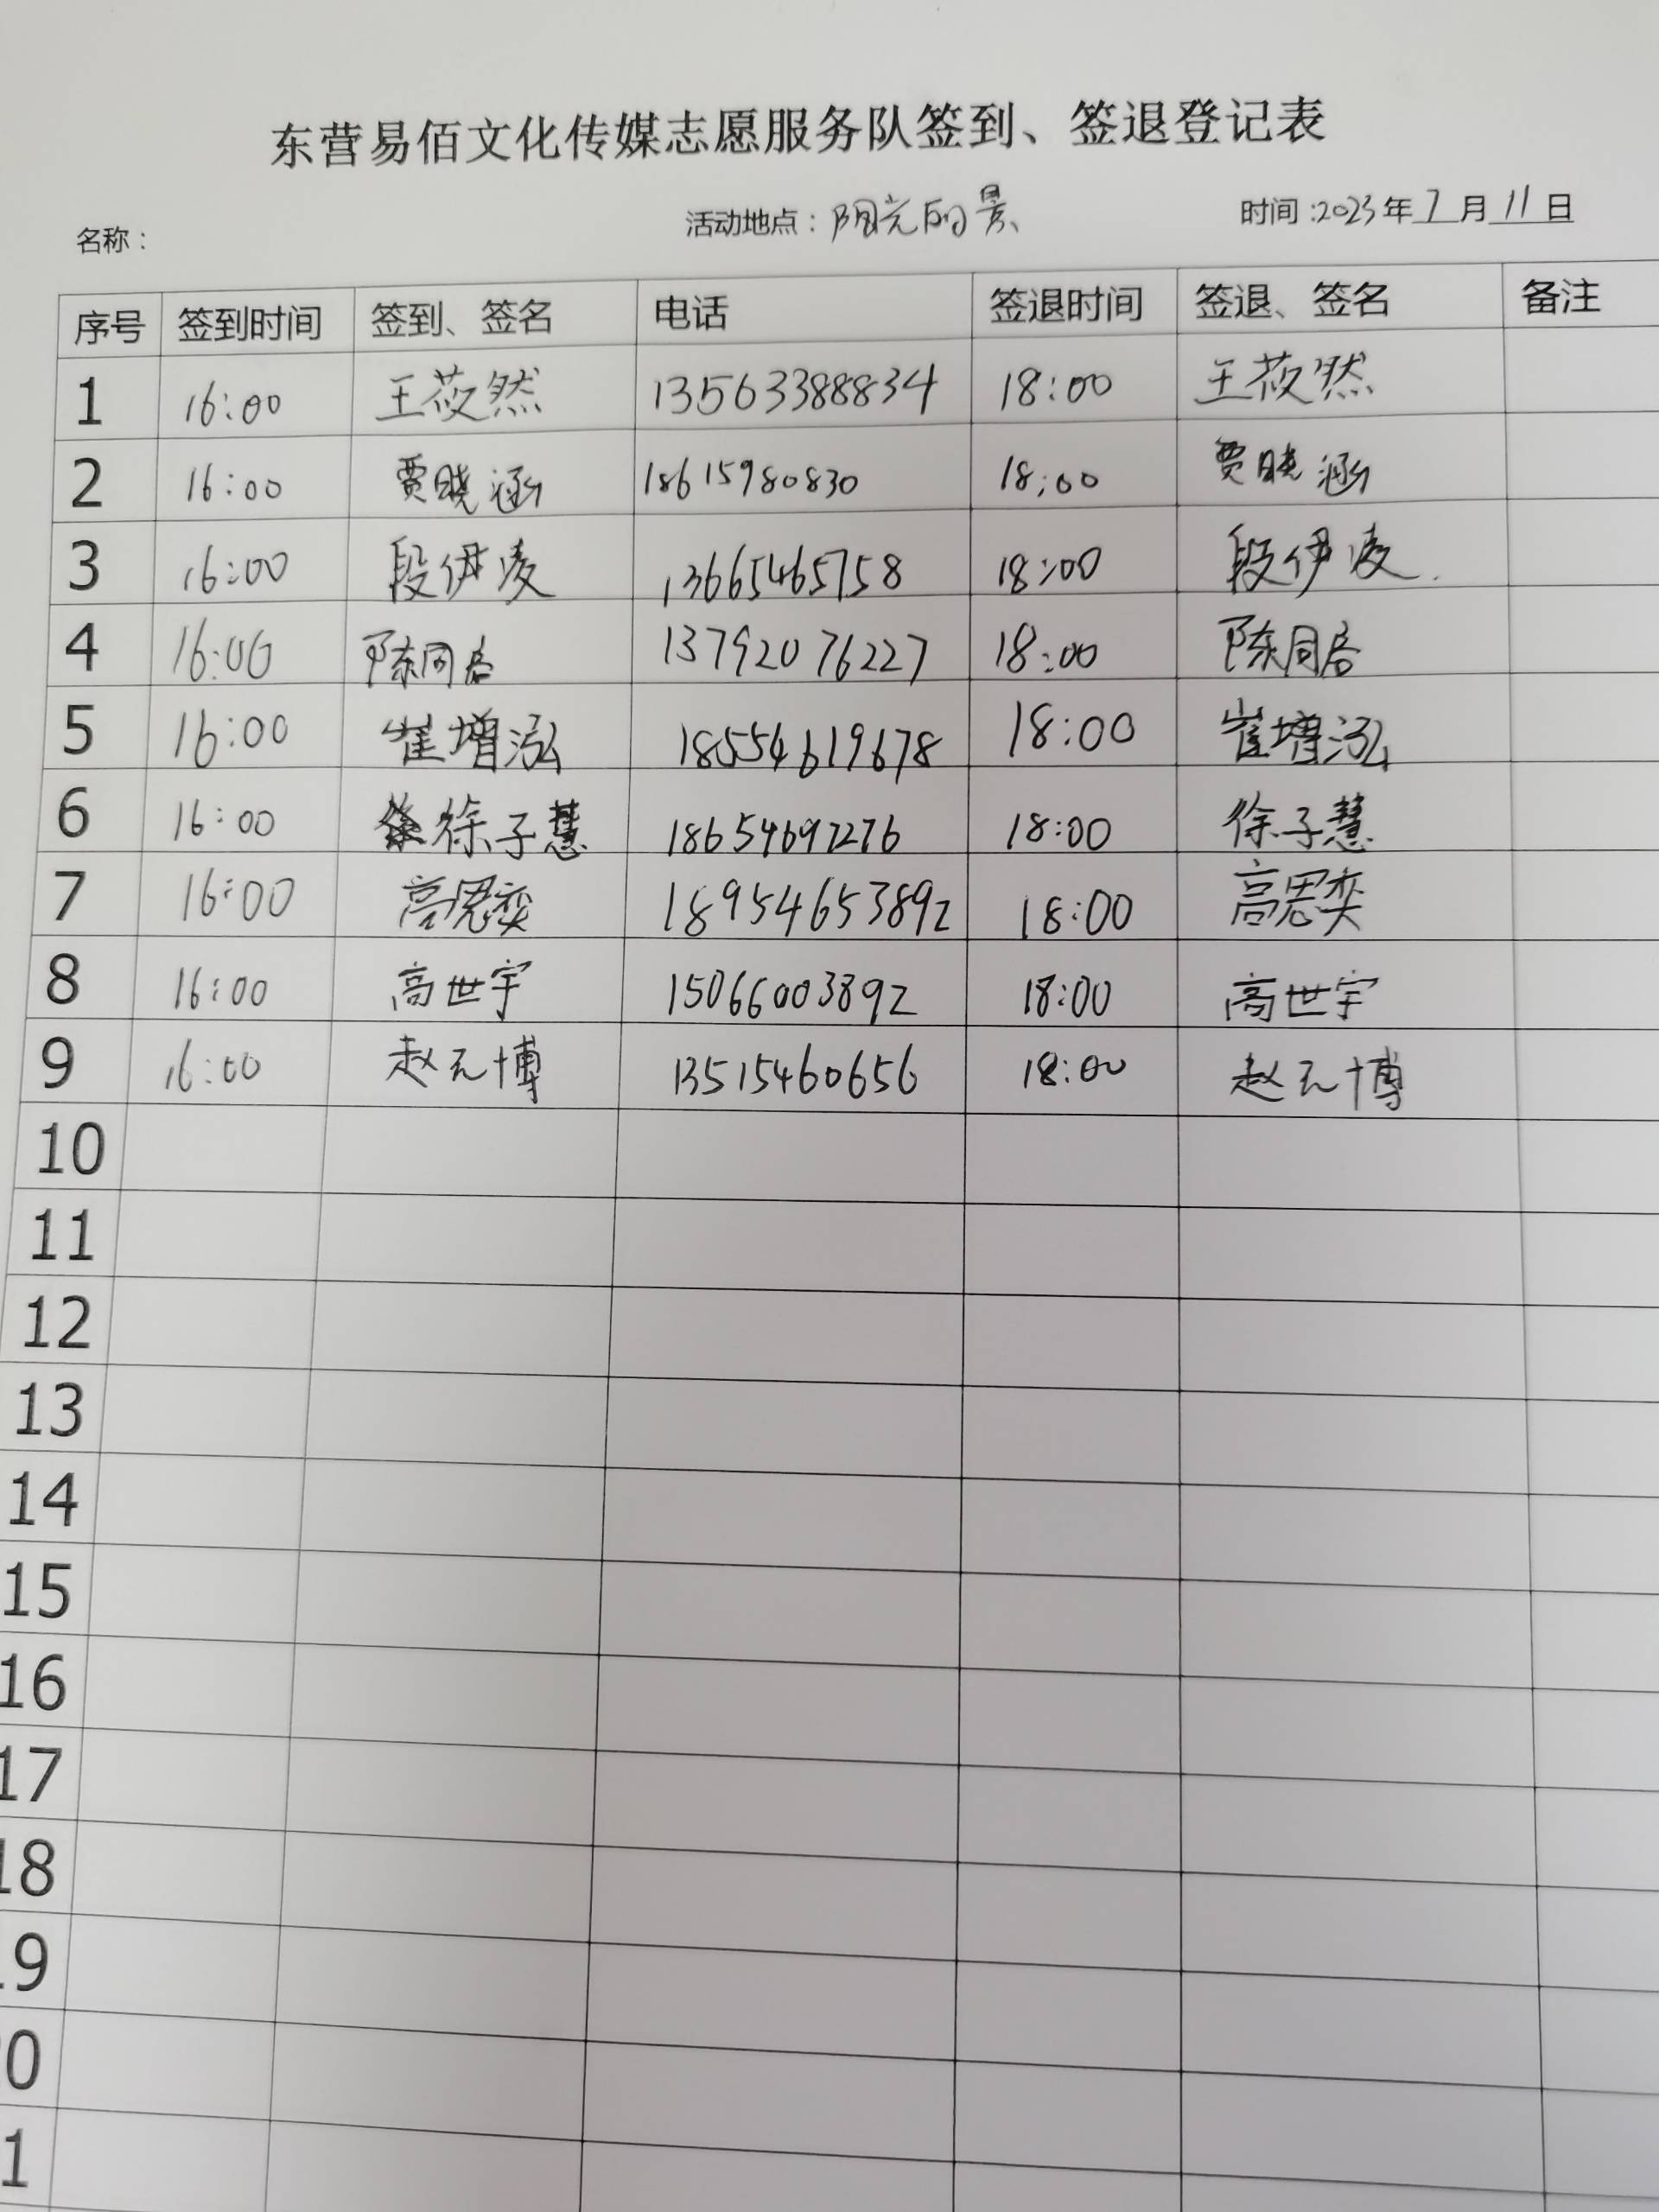 东营易佰文化传媒志愿服务队签到、签退登记表
名称： 活动地点：阳光的景 时间:2023年7月11日
序号 签到时间 签到、签名 电话 签退时间 签退、签名 备注
1 16:00 王莜然 13563388834 18:00 王莜然
2 16:00 贾晓涵 18615980830 18:00 贾晓涵
3 16:00 段伊凌 13665465758 18:00 段伊凌
4 16:00 陈同客 13792076227 18:00 陈同客
5 16:00 崔增泓 18554619678 18:00 崔增泓
6 16:00 徐子慧 18654697276 18:00 徐子慧
7 16:00 高思奕 18954653892 18:00 高思奕
8 16:00 高世宇 15066003892 18:00 高世宇
9 16:00 赵元博 13515460656 18:00 赵元博
10
11
12
13
14
15
16
17
18
19
0
1